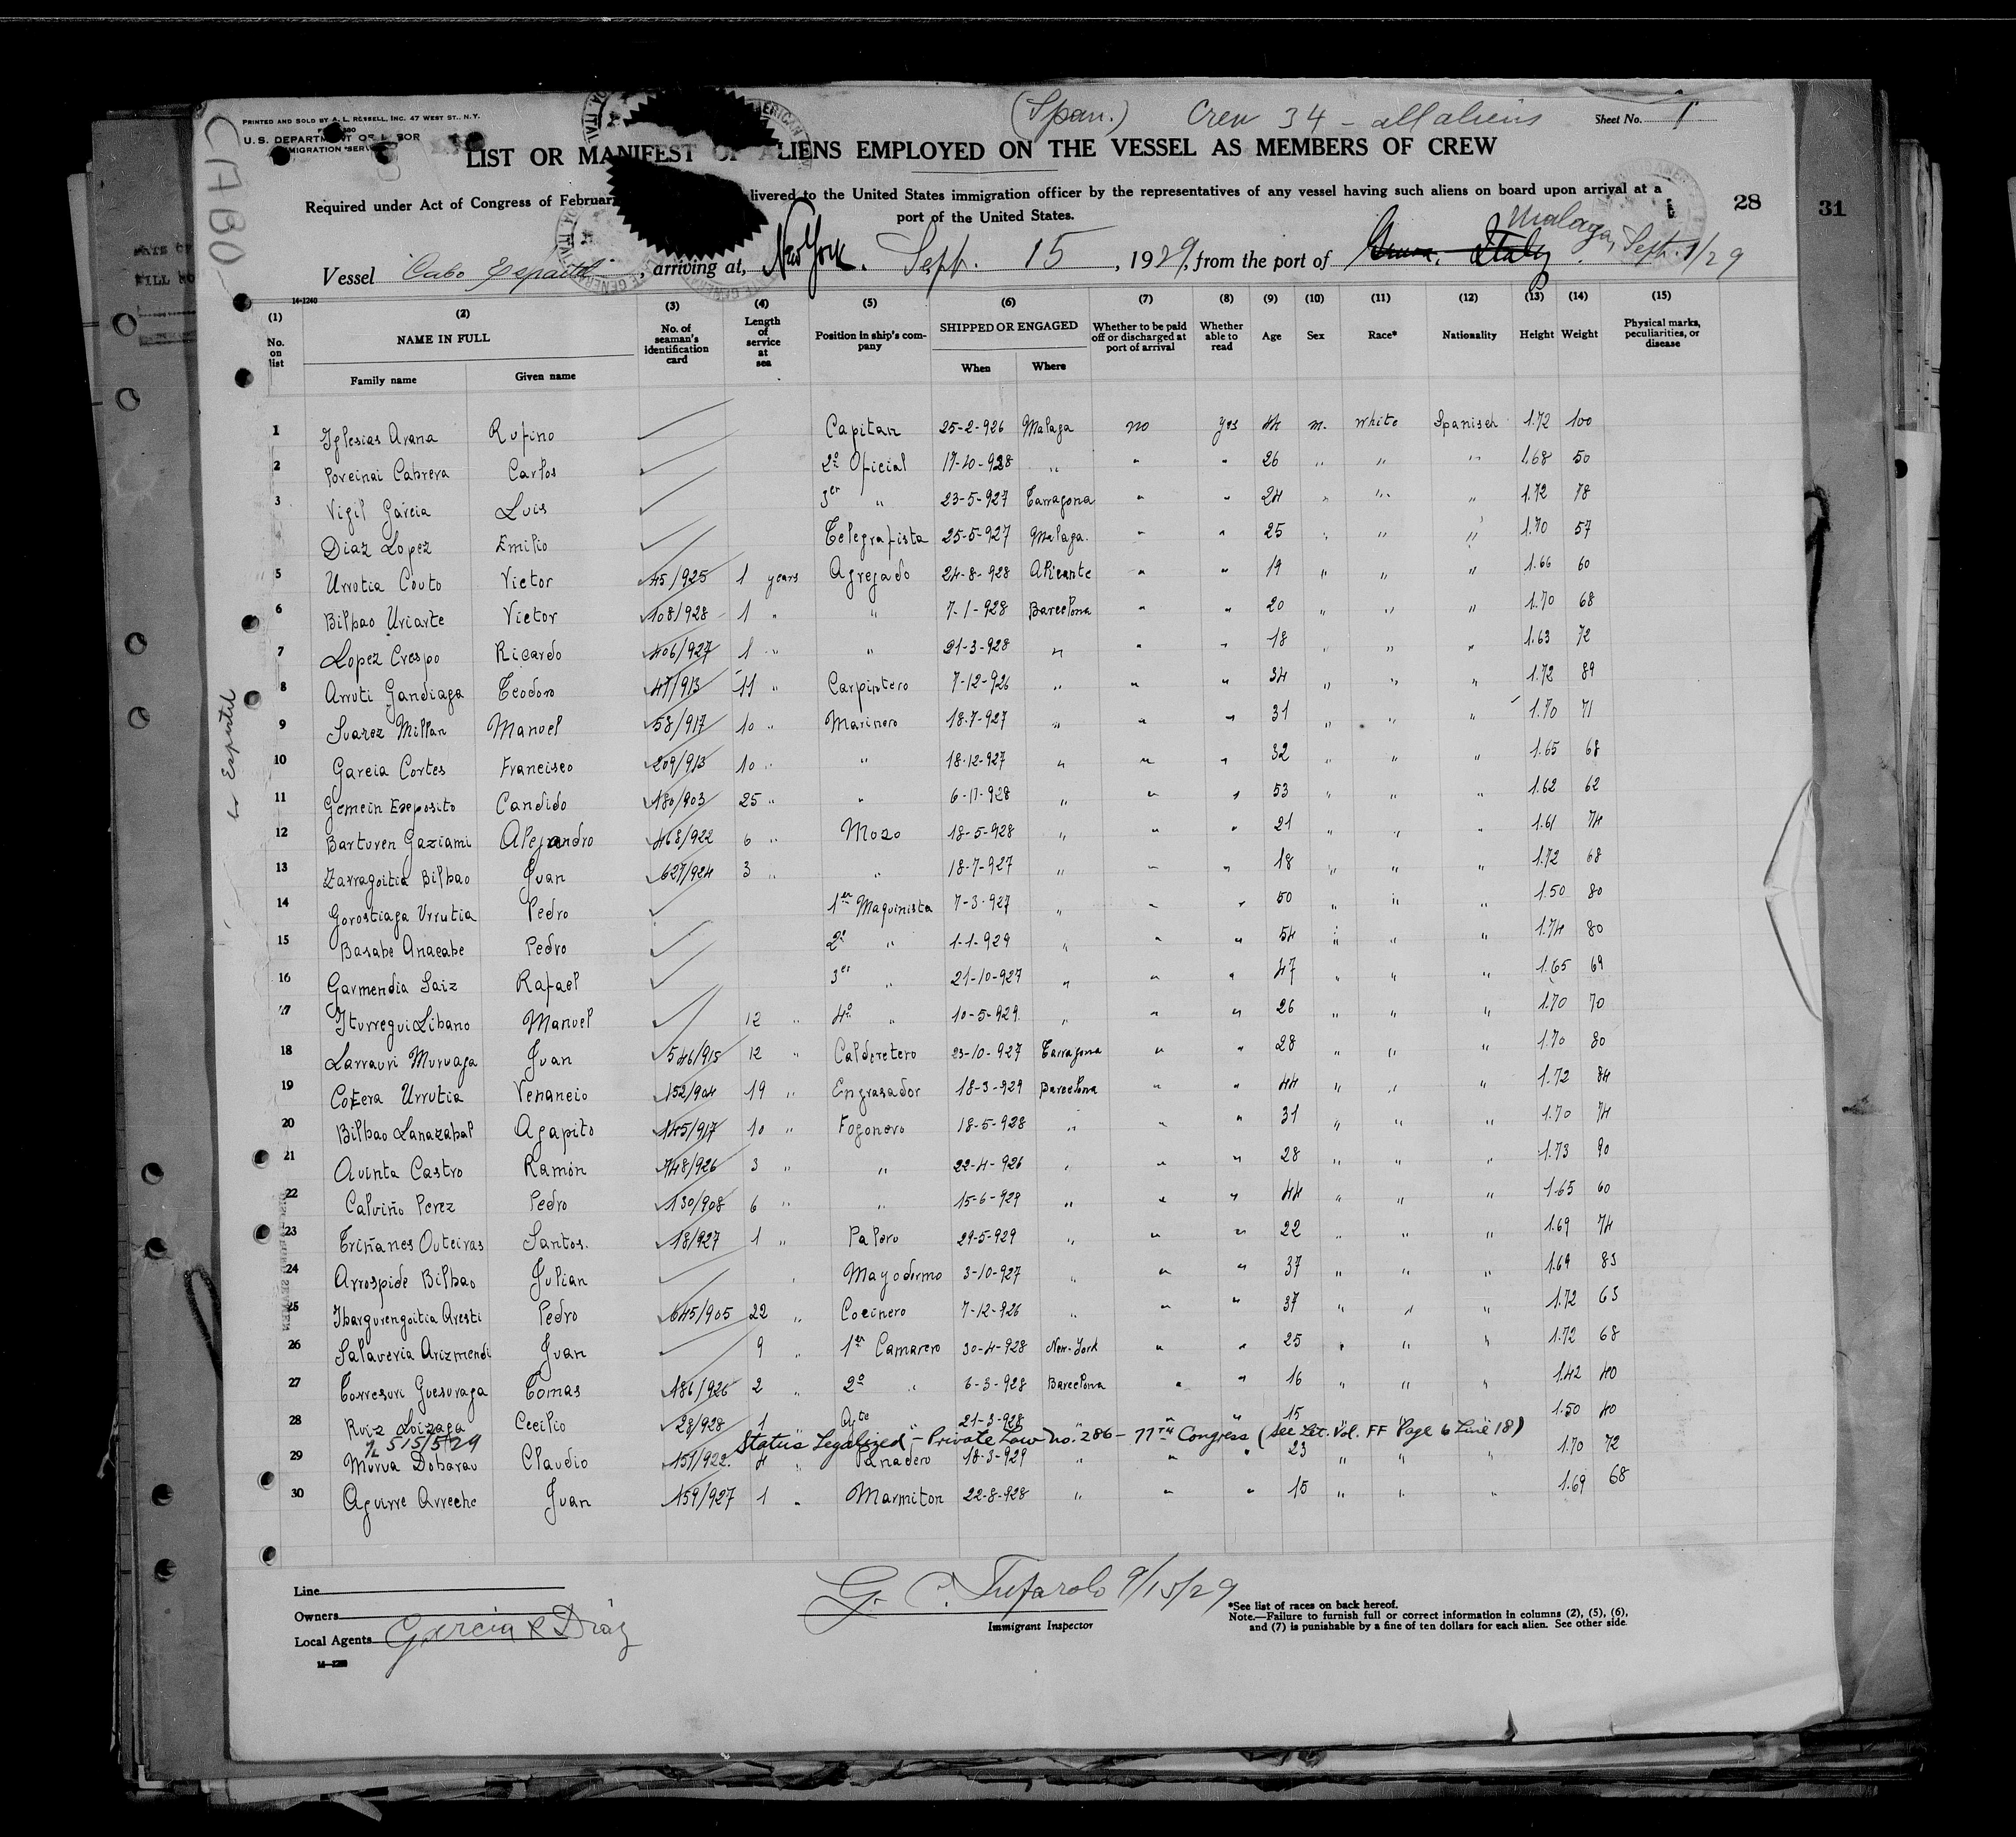 (Span.) Crew 34 - all aliens Sheet No. 1
PRINTED AND SOLD BY A. L. RUSSELL, INC. 47 WEST ST., N.Y.
U. S. DEPARTMENT OF LABOR
IMMIGRATION SERV
CABO
LIST OR MANIFEST OF ALIENS EMPLOYED ON THE VESSEL AS MEMBERS OF CREW
Required under Act of Congress of Februar livered to the United States immigration officer by the representatives of any vessel having such aliens on board upon arrival at a
port of the United States.
28 31
Vessel Cabo Espartel, arriving at, New York. Sept. 15, 1929, from the port of Italy Malaga, Sept. 1/29
14-1240
(1) (2) (3) (4) (5) (6) (7) (8) (9) (10) (11) (12) (13) (14) (15)
No. on list NAME IN FULL No. of seaman's identification card Length of service at sea Position in ship's company SHIPPED OR ENGAGED Whether to be paid off or discharged at port of arrival Whether able to read Age Sex Race* Nationality Height Weight Physical marks, peculiarities, or disease
Family name Given name When Where
1 Iglesias Arana Rufino Capitan 25-2-926 Malaga no yes 44 m. white Spanish 1.72 100
2 Cabrera Carlos 2º Oficial 17-10-928 " " " 26 " " " 1.68 50
3 Vigil Garcia Luis 3er " 23-5-927 Tarragona " " 24 " " " 1.72 78
4 Diaz Lopez Emilio Telegrafista 25-5-927 Malaga. " " 25 " " " 1.70 57
5 Urrutia Couto Victor 45/925 1 years Agregado 24-8-928 Alicante " " 19 " " " 1.66 60
6 Bilbao Uriarte Victor 108/928 1 " " 7-1-928 Barcelona " " 20 " " " 1.70 68
7 Lopez Crespo Ricardo 406/927 1 " " 21-3-928 " " " 18 " " " 1.63 72
8 Arruti Gandiaga Teodoro 47/913 11 " Carpintero 7-12-926 " " " 34 " " " 1.72 89
9 Suarez Millan Manuel 58/917 10 " Marinero 18-7-927 " " " 31 " " " 1.70 71
10 Garcia Cortes Francisco 209/913 10 " " 18-12-927 " " " 32 " " " 1.65 68
11 Gemein Exposito Candido 180/903 25 " " 6-11-928 " " " 53 " " " 1.62 62
12 Barturen Gaziami Alejandro 468/922 6 " Mozo 18-5-928 " " " 21 " " " 1.61 74
13 Zarragoitia Bilbao Juan 627/924 3 " " 18-7-927 " " " 18 " " " 1.72 68
14 Gorostiaga Urrutia Pedro 1er Maquinista 7-3-927 " " " 50 " " " 1.50 80
15 Basabe Anacabe Pedro 2º " 1-1-929 " " " 54 " " " 1.74 80
16 Garmendia Saiz Rafael 3er " 21-10-927 " " " 47 " " " 1.65 69
17 Iturregui Libano Manuel 12 " 4º " 10-5-929 " " " 26 " " " 1.70 70
18 Larrauri Muruaga Juan 546/915 12 " Calderetero 23-10-927 Tarragona " " 28 " " " 1.70 80
19 Cotera Urrutia Venancio 152/904 19 " Engrasador 18-3-929 Barcelona " " 44 " " " 1.72 84
20 Bilbao Lanazabal Agapito 145/917 10 " Fogonero 18-5-928 " " " 31 " " " 1.70 74
21 Quinta Castro Ramón 748/926 3 " " 22-4-926 " " " 28 " " " 1.73 90
22 Calviño Perez Pedro 130/908 6 " " 15-6-929 " " " 44 " " " 1.65 60
23 Triñanes Outeiras Santos. 18/927 1 " Palero 29-5-929 " " " 22 " " " 1.69 74
24 Arrospide Bilbao Julian " Mayodormo 3-10-927 " " " 37 " " " 1.69 83
25 Ibargurengoitia Aresti Pedro 645/905 22 " Cocinero 7-12-926 " " " 37 " " " 1.72 63
26 Salaveria Arizmendi Juan 9 " 1er Camarero 30-4-928 New-York " " 25 " " " 1.72 68
27 Torresuri Guesuraga Tomas 186/926 2 " 2º " 6-3-928 Barcelona " " 16 " " " 1.42 40
28 Ruiz Loizaga Cecilio 28/928 1 " Ayte 21-3-928 " " " 15 " " " 1.50 40
515/5/29 Status Legalized - Private Law No. 286 - 77th Congress (see Let. Vol. FF Page 6 Line 18)
29 Murua Dobarau Claudio 151/922. 4 " Panadero 18-3-929 " " " 23 " " " 1.70 72
30 Aguirre Arreche Juan 159/927 1 " Marmiton 22-8-928 " " " 15 " " " 1.69 68
Line
Owners
Local Agents Garcia & Diaz
G. C. Tufarolo 9/15/29
Immigrant Inspector
*See list of races on back hereof.
Note.—Failure to furnish full or correct information in columns (2), (5), (6),
and (7) is punishable by a fine of ten dollars for each alien. See other side.